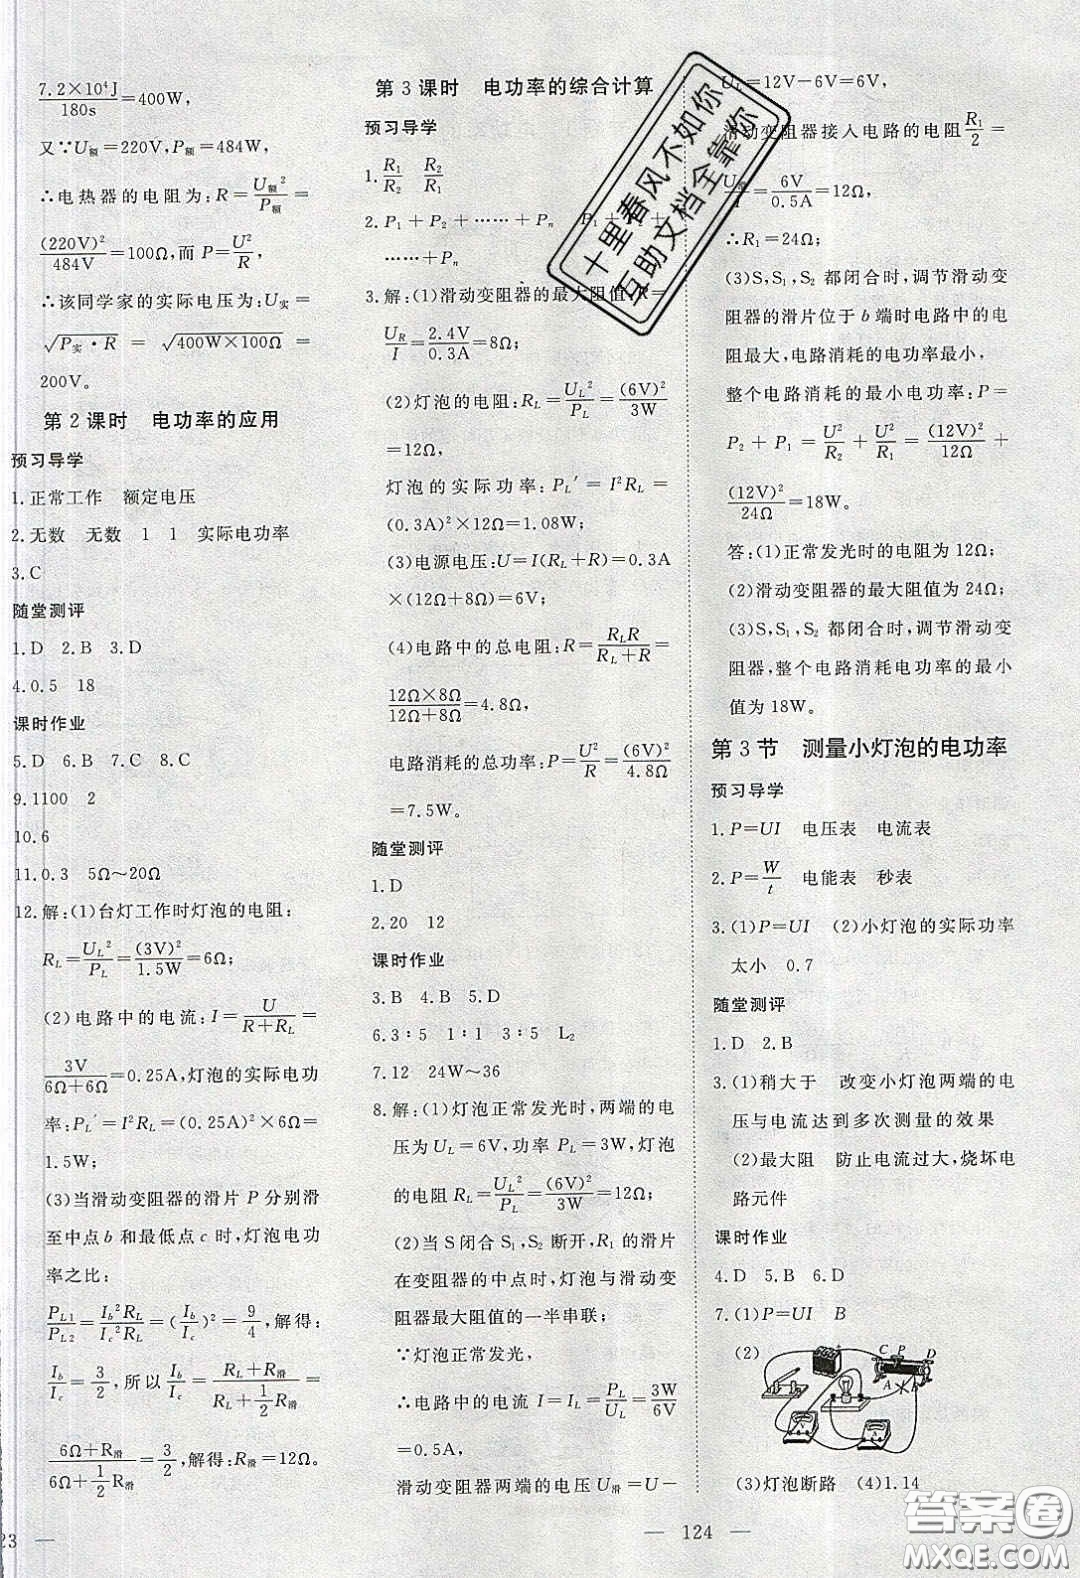 7.2×10⁴J/180s=400W,
又∵U额=220V,P额=484W,
∴电热器的电阻为:R=U额²/P额=
(220V)²/484V=100Ω,而P=U²/R,
∴该同学家的实际电压为:U实=
√(P实·R)=√(400W×100Ω)=
200V。
第2课时 电功率的应用
预习导学
1.正常工作 额定电压
2.无数 无数 1 1 实际电功率
3.C
随堂测评
1.D 2.B 3.D
4.0.5 18
课时作业
5.D 6.B 7.C 8.C
9.1100 2
10.6
11.0.3 5Ω~20Ω
12.解:(1)台灯工作时灯泡的电阻:
R_L=U_L²/P_L=(3V)²/1.5W=6Ω;
(2)电路中的电流:I=U/(R+R_L)=
3V/(6Ω+6Ω)=0.25A,灯泡的实际电功
率:P_L′=I²R_L=(0.25A)²×6Ω=
1.5W;
(3)当滑动变阻器的滑片P分别滑
至中点b和最低点c时,灯泡电功
率之比:
P_L1/P_L2=I_b²R_L/I_c²R_L=(I_b/I_c)²=9/4,解得:
I_b/I_c=3/2,所以I_b/I_c=(R_L+R滑)/(R_L+½R滑)=
(6Ω+R滑)/(6Ω+½R滑)=3/2,解得:R滑=12Ω。
23
第3课时 电功率的综合计算
预习导学
1.R₁/R₂ R₂/R₁
2.P₁+P₂+……+Pₙ P₁+P₂+
……+Pₙ
3.解:(1)滑动变阻器的最大阻值:R=
U_R/I=2.4V/0.3A=8Ω;
(2)灯泡的电阻:R_L=U_L²/P_L=(6V)²/3W
=12Ω,
灯泡的实际功率:P_L′=I²R_L=
(0.3A)²×12Ω=1.08W;
(3)电源电压:U=I(R_L+R)=0.3A
×(12Ω+8Ω)=6V;
(4)电路中的总电阻:R=R_LR/(R_L+R)=
12Ω×8Ω/(12Ω+8Ω)=4.8Ω,
电路消耗的总功率:P=U²/R=(6V)²/4.8Ω
=7.5W。
随堂测评
1.D
2.20 12
课时作业
3.B 4.B 5.D
6.3∶5 1∶1 3∶5 L₂
7.12 24W~36
8.解:(1)灯泡正常发光时,两端的电
压为U_L=6V,功率P_L=3W,灯泡
的电阻R_L=U_L²/P_L=(6V)²/3W=12Ω;
(2)当S闭合S₁,S₂断开,R₁的滑片
在变阻器的中点时,灯泡与滑动变
阻器最大阻值的一半串联;
∵灯泡正常发光,
∴电路中的电流I=I_L=P_L/U_L=3W/6V
=0.5A,
滑动变阻器两端的电压U滑=U-
124
U_L=12V-6V=6V,
滑动变阻器接入电路的电阻R₁/2=
U滑/I=6V/0.5A=12Ω,
∴R₁=24Ω;
(3)S,S₁,S₂都闭合时,调节滑动变
阻器的滑片位于b端时电路中的电
阻最大,电路消耗的电功率最小,
整个电路消耗的最小电功率:P=
P₂+P₁=U²/R₂+U²/R₁=(12V)²/12Ω+
(12V)²/24Ω=18W。
答:(1)正常发光时的电阻为12Ω;
(2)滑动变阻器的最大阻值为24Ω;
(3)S,S₁,S₂都闭合时,调节滑动变
阻器,整个电路消耗电功率的最小
值为18W。
第3节 测量小灯泡的电功率
预习导学
1.P=UI 电压表 电流表
2.P=W/t 电能表 秒表
3.(1)P=UI (2)小灯泡的实际功率
太小 0.7
随堂测评
1.D 2.B
3.(1)稍大于 改变小灯泡两端的电
压与电流达到多次测量的效果
(2)最大阻 防止电流过大,烧坏电
路元件
课时作业
4.D 5.B 6.D
7.(1)P=UI B
(2)
C P D
A B
(3)灯泡断路 (4)1.14
十里春风不如你
互助文档全靠你
答案圈
MXQE.COM